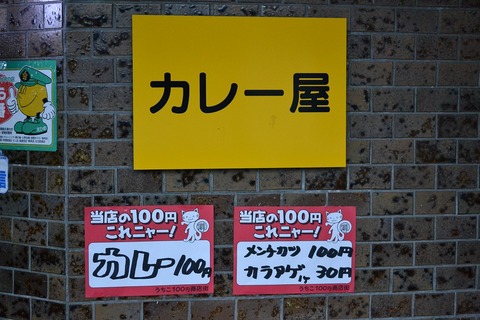 カレー屋
当店の100円
これニャー!
カレー100円
当店の100円
これニャー!
メンチカツ 100円
カラアゲ1ケ 30円
うちこ100円商店街